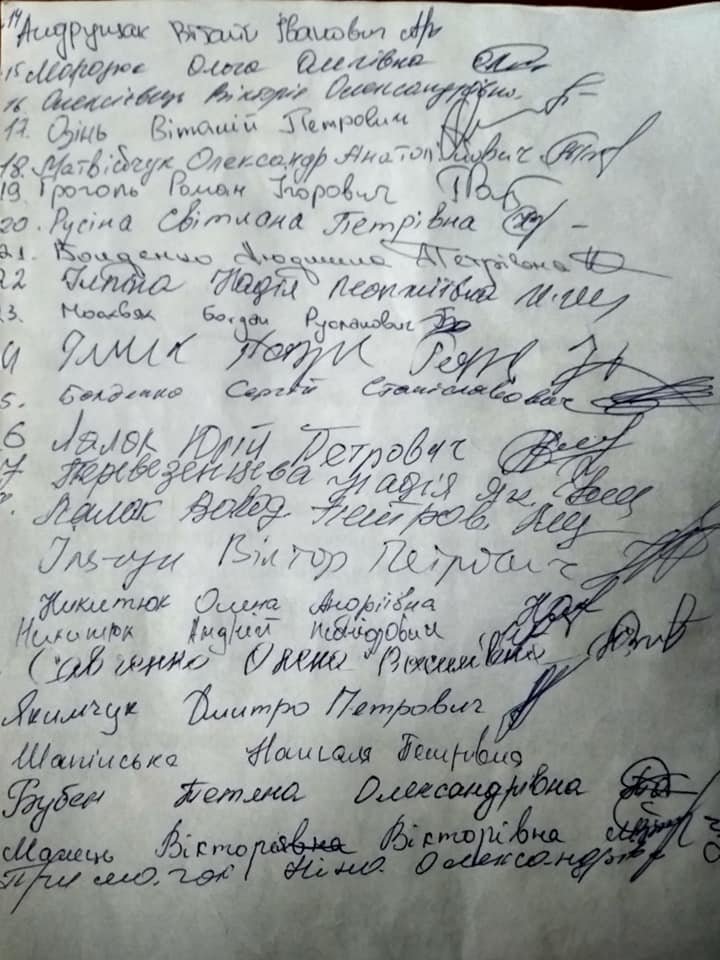 14 Андрущак Віталій Іванович
15 Мороз Ольга Олегівна
16. Олексієвець Вікторія Олександрівна.
17. Озінь Віталій Петрович
18. Матвійчук Олександр Анатолійович
19. Гроголь Роман Ігорович
20. Русіна Світлана Петрівна
21. Бонденко Людмила Петрівна
22 Ільїна Надія
3. Москвяк Богдан Русланович
4
5. Бонденко Сергій Станіславович
6 Лалак Юрій Петрович
7 Перевезенцева Надія Як.
Лалак Волод. Петров.
Ільчук Віктор Петрович
Никитюк Олена Андріївна
Никитюк Андрій
Савченко Олена Василівна
Якимчук Дмитро Петрович
Шапінська Наталя Петрівна
Бубен Тетяна Олександрівна
Вікторівна Вікторівна
Ніна Олександр